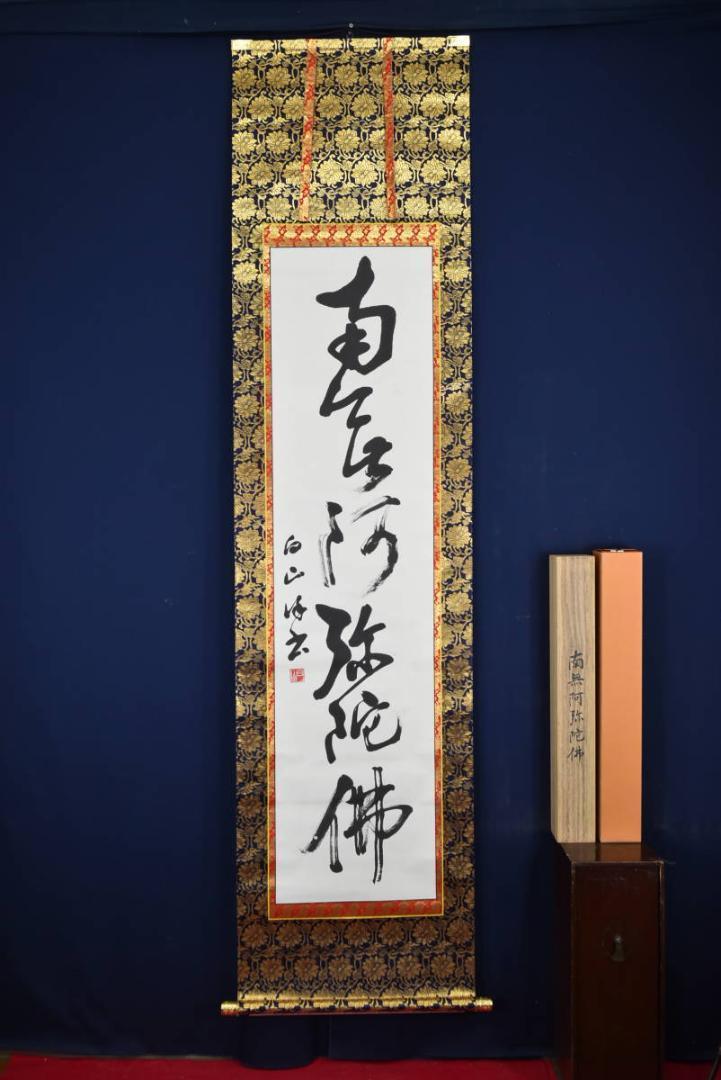 南无阿弥陀佛
白山洋書
南無阿弥陀佛